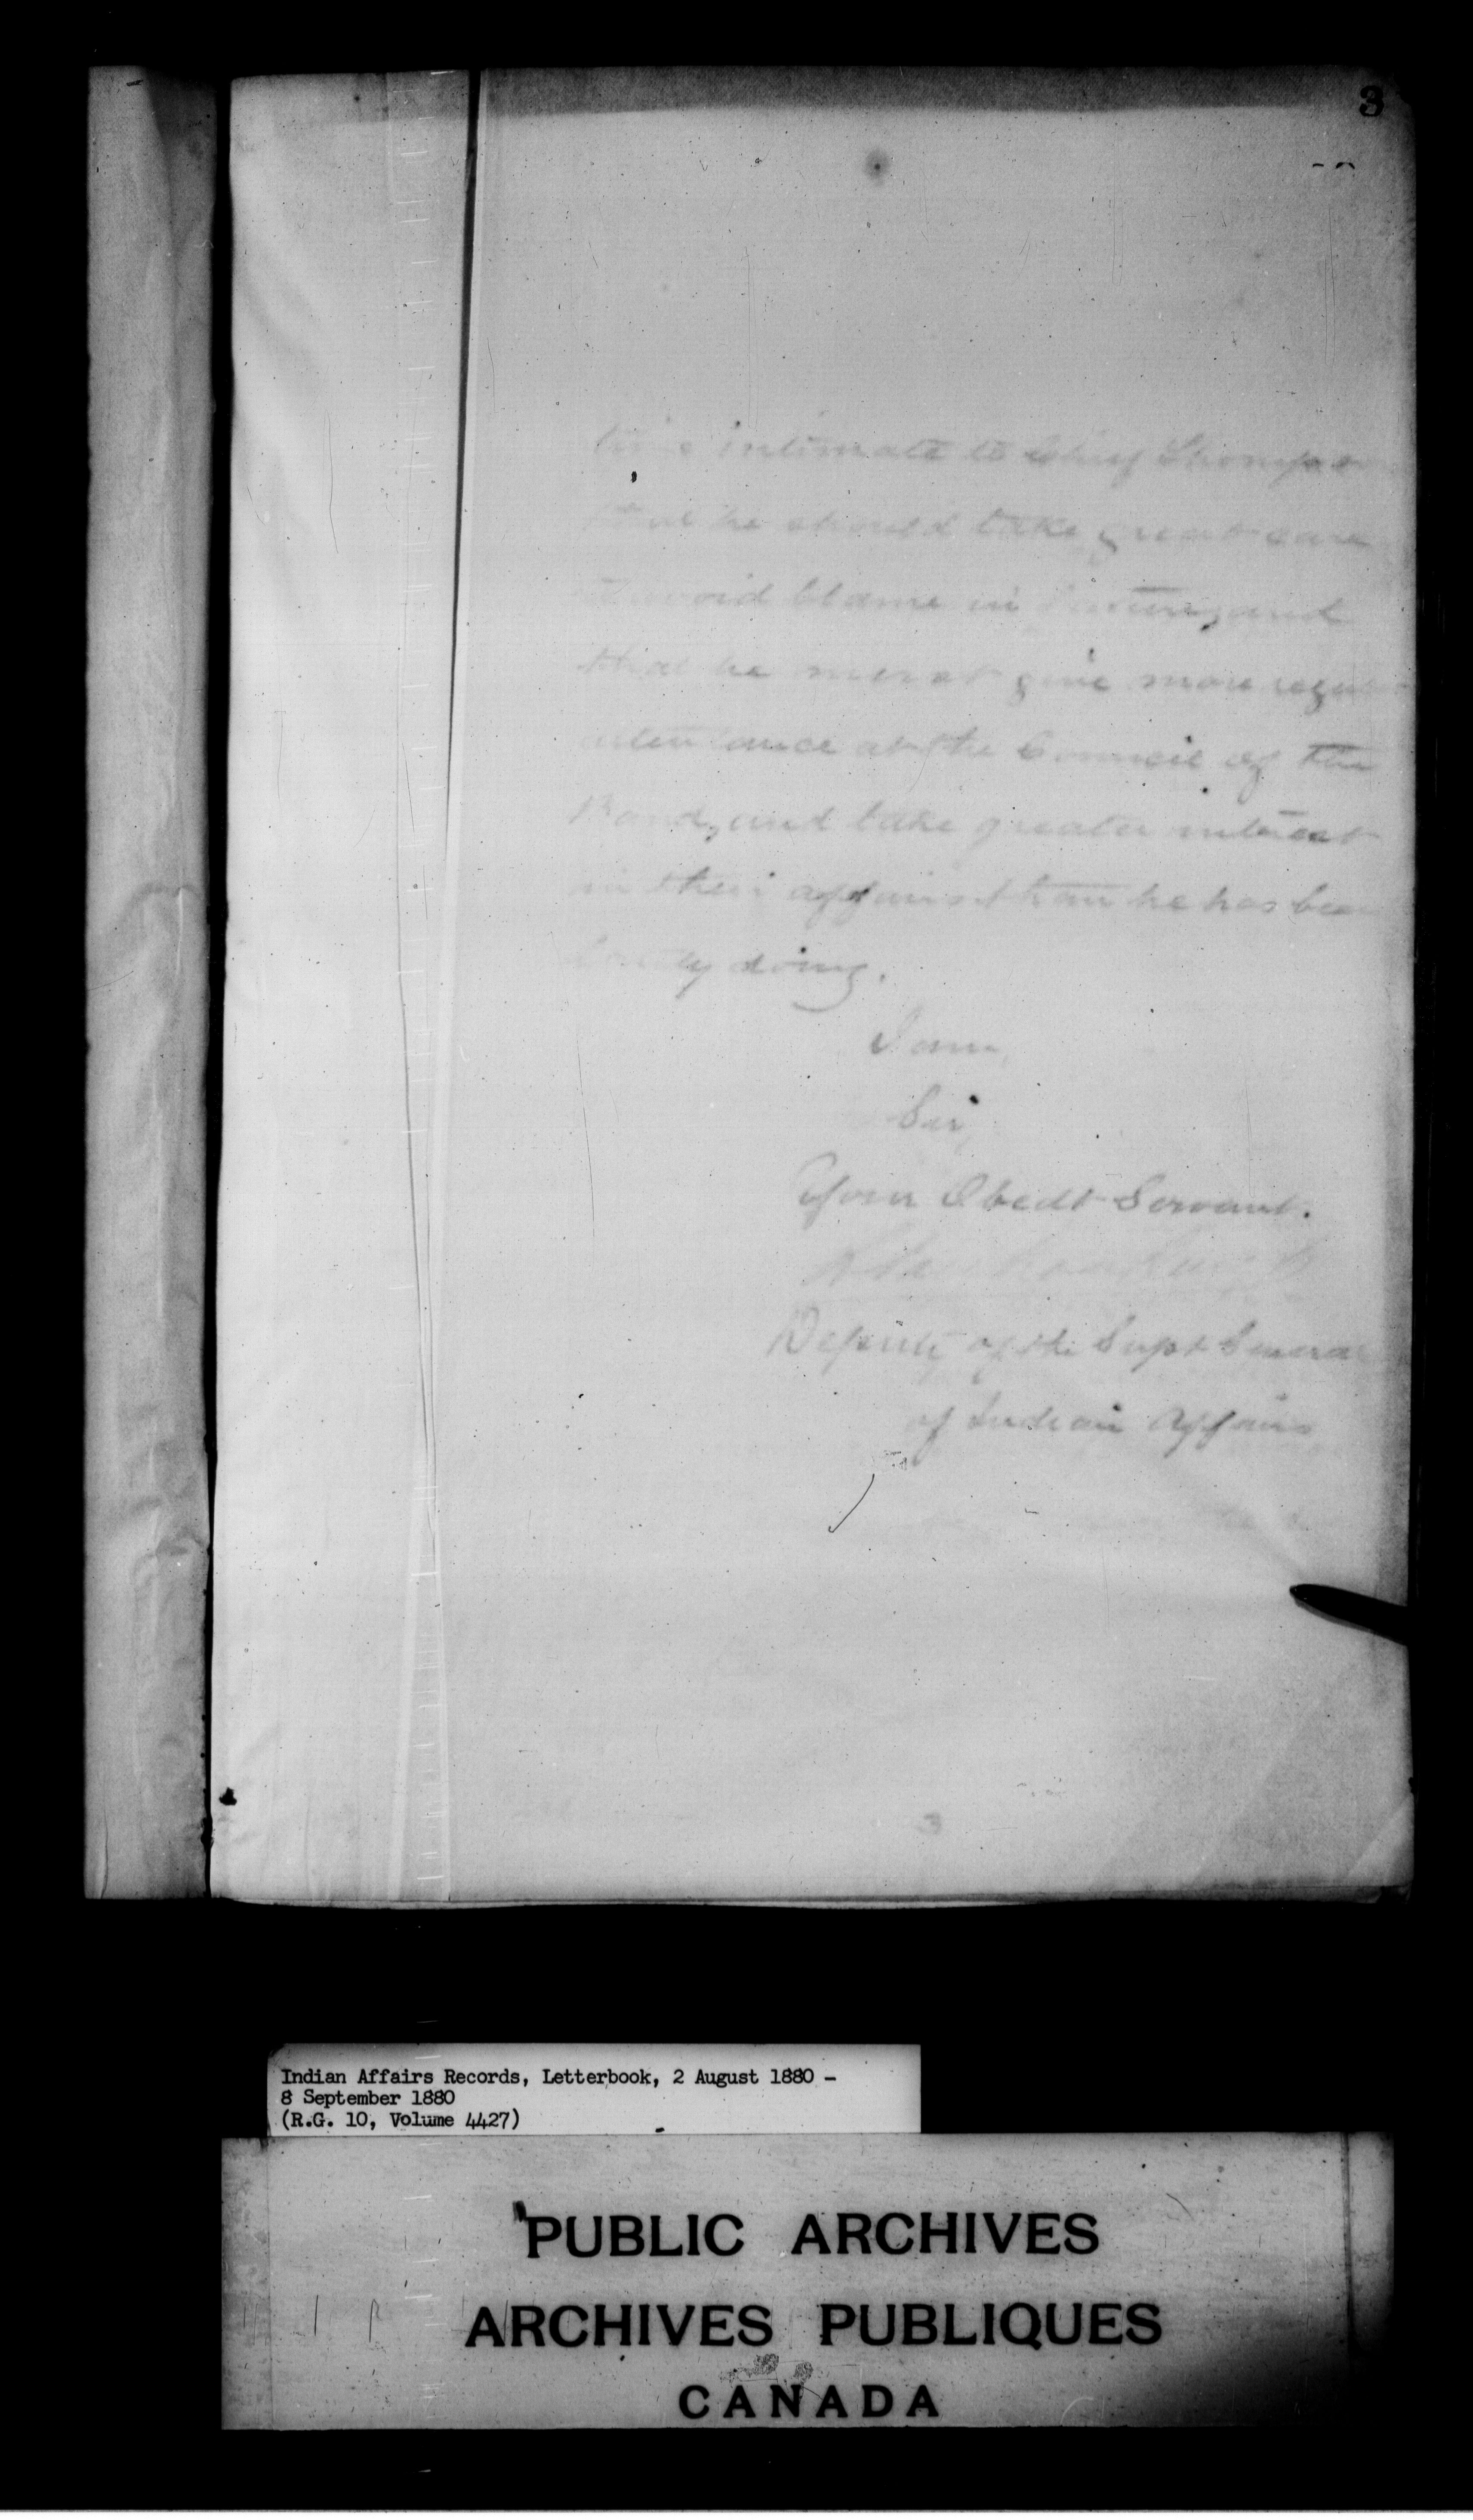 3
time intimate to Chief Thompson
that he should take great care
to avoid blame in future, and
that he must give more regular
attendance at the Council of the
Band, and take greater interest
in their affairs than he has been
lately doing.
I am,
Sir
Your Obedt Servant.
Deputy of the Supt General
of Indian Affairs
3
Indian Affairs Records, Letterbook, 2 August 1880 -
8 September 1880
(R.G. 10, Volume 4427)
PUBLIC ARCHIVES
ARCHIVES PUBLIQUES
CANADA